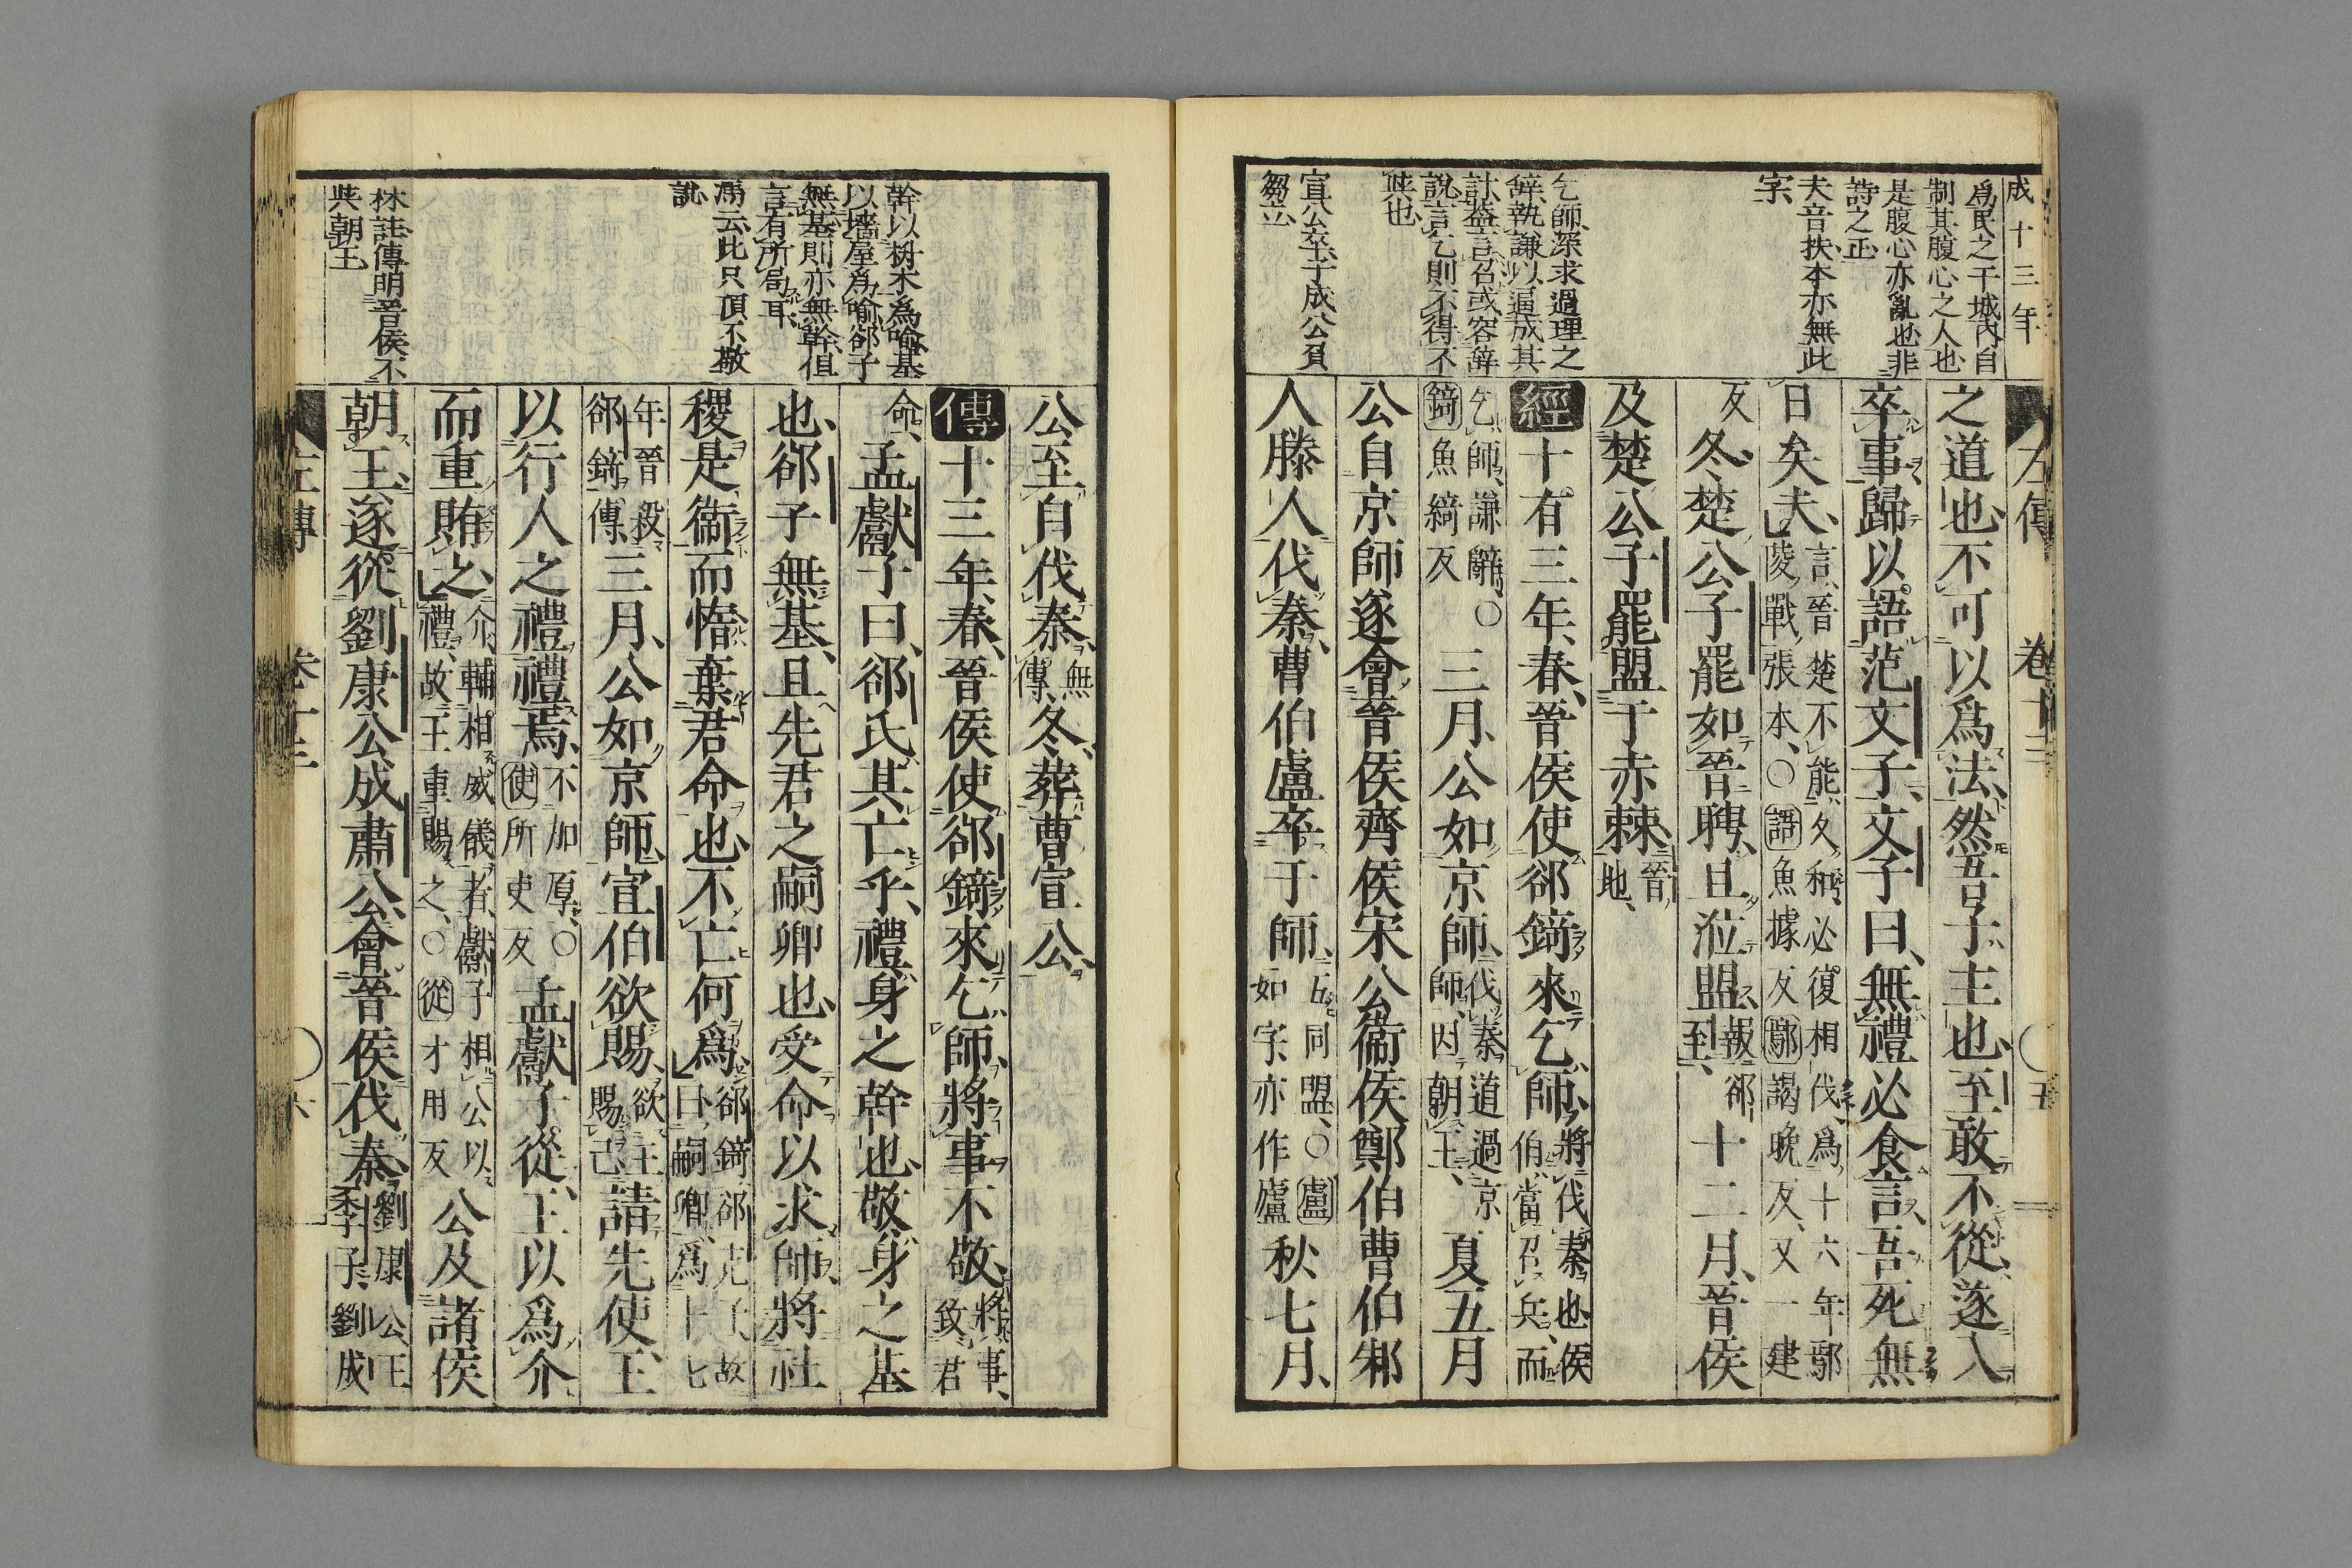 成十三年
爲民之干城内自
制其腹心之人也
是腹心亦亂也非
詩之正
夫音扶本亦無此
字
乞師深求過理之
辭執謙以逼成其
計蓋言召或容辭
說言乞則不得不
與也
宣公卒于成公負
芻立
左傳 卷十三 〇五
之道也不可以爲法然吾子主也至敢不從遂入
卒事歸以語范文子文子曰無禮必食言吾死無
日矣夫言晉楚不能久和必復相伐爲十六年鄢
陵戰張本〇語魚據反鄢謁晚反又一建
反冬楚公子罷如晉聘且涖盟報郤至十二月晉侯
及楚公子罷盟于赤棘晉地
經十有三年春晉侯使郤錡來乞師將伐秦也侯
伯當召兵而
乞師謙辭〇
錡魚綺反三月公如京師伐秦道過京
師因朝王夏五月
公自京師遂會晉侯齊侯宋公衞侯鄭伯曹伯邾
人滕人伐秦曹伯盧卒于師五同盟〇盧
如字亦作廬秋七月
公至自伐秦無
傳冬葬曹宣公
傳十三年春晉侯使郤錡來乞師將事不敬將事
致君
命孟獻子曰郤氏其亡乎禮身之幹也敬身之基
也郤子無基且先君之嗣卿也受命以求師將社
稷是衞而惰棄君命也不亡何爲郤錡郤克子故
曰嗣卿爲十七
年晉殺
郤錡傳三月公如京師宣伯欲賜欲王
賜己請先使王
以行人之禮禮焉不加厚〇
使所吏反孟獻子從王以爲介
而重賄之介輔相威儀者獻子相公以
禮故王重賜之〇從才用反公及諸侯
朝王遂從劉康公成肅公會晉侯伐秦劉康公王
季子劉成
幹以樹木爲喻基
以墻屋爲喻郤子
無基則亦無幹但
言有所局耳
馮云此只頂不敬
說
林註傳明晉侯不
與朝王
左傳 卷十三 〇六